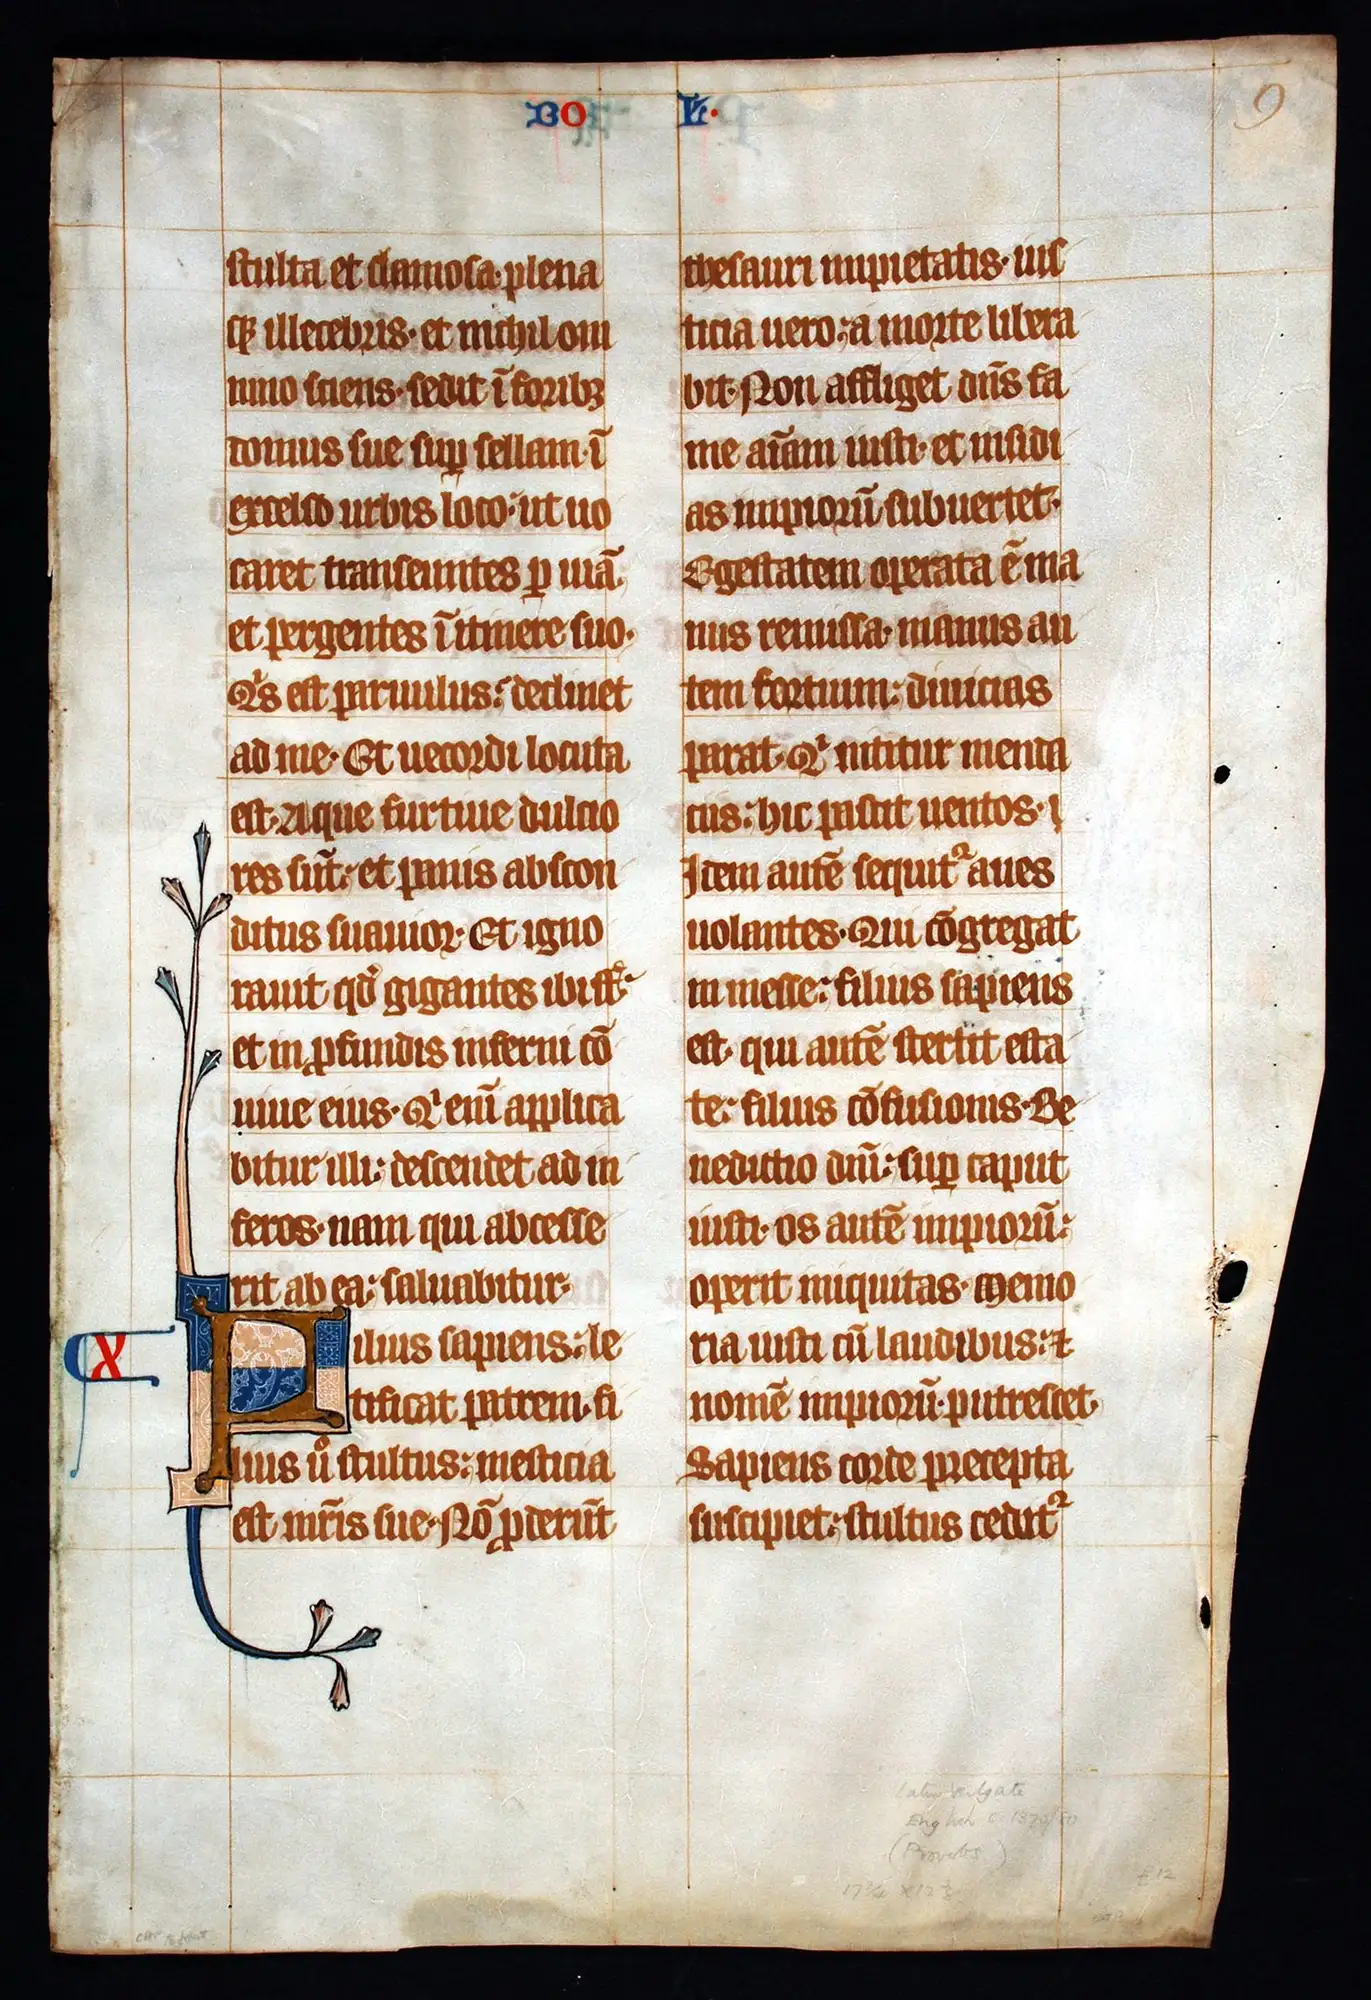 BO LI·
9
stulta et clamosa· plena
q3 illecebris· et nichil om
nino sciens· sedit ī forib3
domus sue suꝑ sellam· ī
excelso urbis loco· ut uo
caret transeuntes ꝑ uiā·
et pergentes ī itinere suo·
Qis est paruulus: declinet
ad me· Et uecordi locuta
est· Aque furtiue dulcio
res sūt: et panis abscon
ditus suauior· Et igno
rauit qđ gigantes ibi sīt:
et in ꝓfundis inferni cō
uiue eius· Qi enī applica
bitur illi: descendet ad in
feros· nam qui abcesse
rit ab ea: saluabitur·
X
Filius sapiens: le
tificat patrem· fi
lius uͦ stultus: mesticia
est mr̄is sue· Nō ꝓderūt
thesauri impietatis· ius
ticia uero: a morte libera
bit· Non affliget dn̄s fa
me aīam iusti· et insidi
as impiorū subuertet·
Egestatem operata ē ma
nus remissa· manus au
tem fortium: diuicias
parat· Qi nititur menda
ciis: hic pascit uentos· i
Idem autē sequit᷑ aues
uolantes· Qui cōgregat
in messe: filius sapiens
est· qui autē stertit esta
te: filius cōfusionis· Be
nedictio dn̄i: suꝑ caput
iusti· os autē impiorū:
operit iniquitas· Memo
ria iusti cū laudibus: ⁊
nomē impiorū putrescet·
Sapiens corde precepta
suscipiet: stultus cedit᷑
Latin Vulgate
English c. 1370/80
(Proverbs)
17¾ x 12½
£12